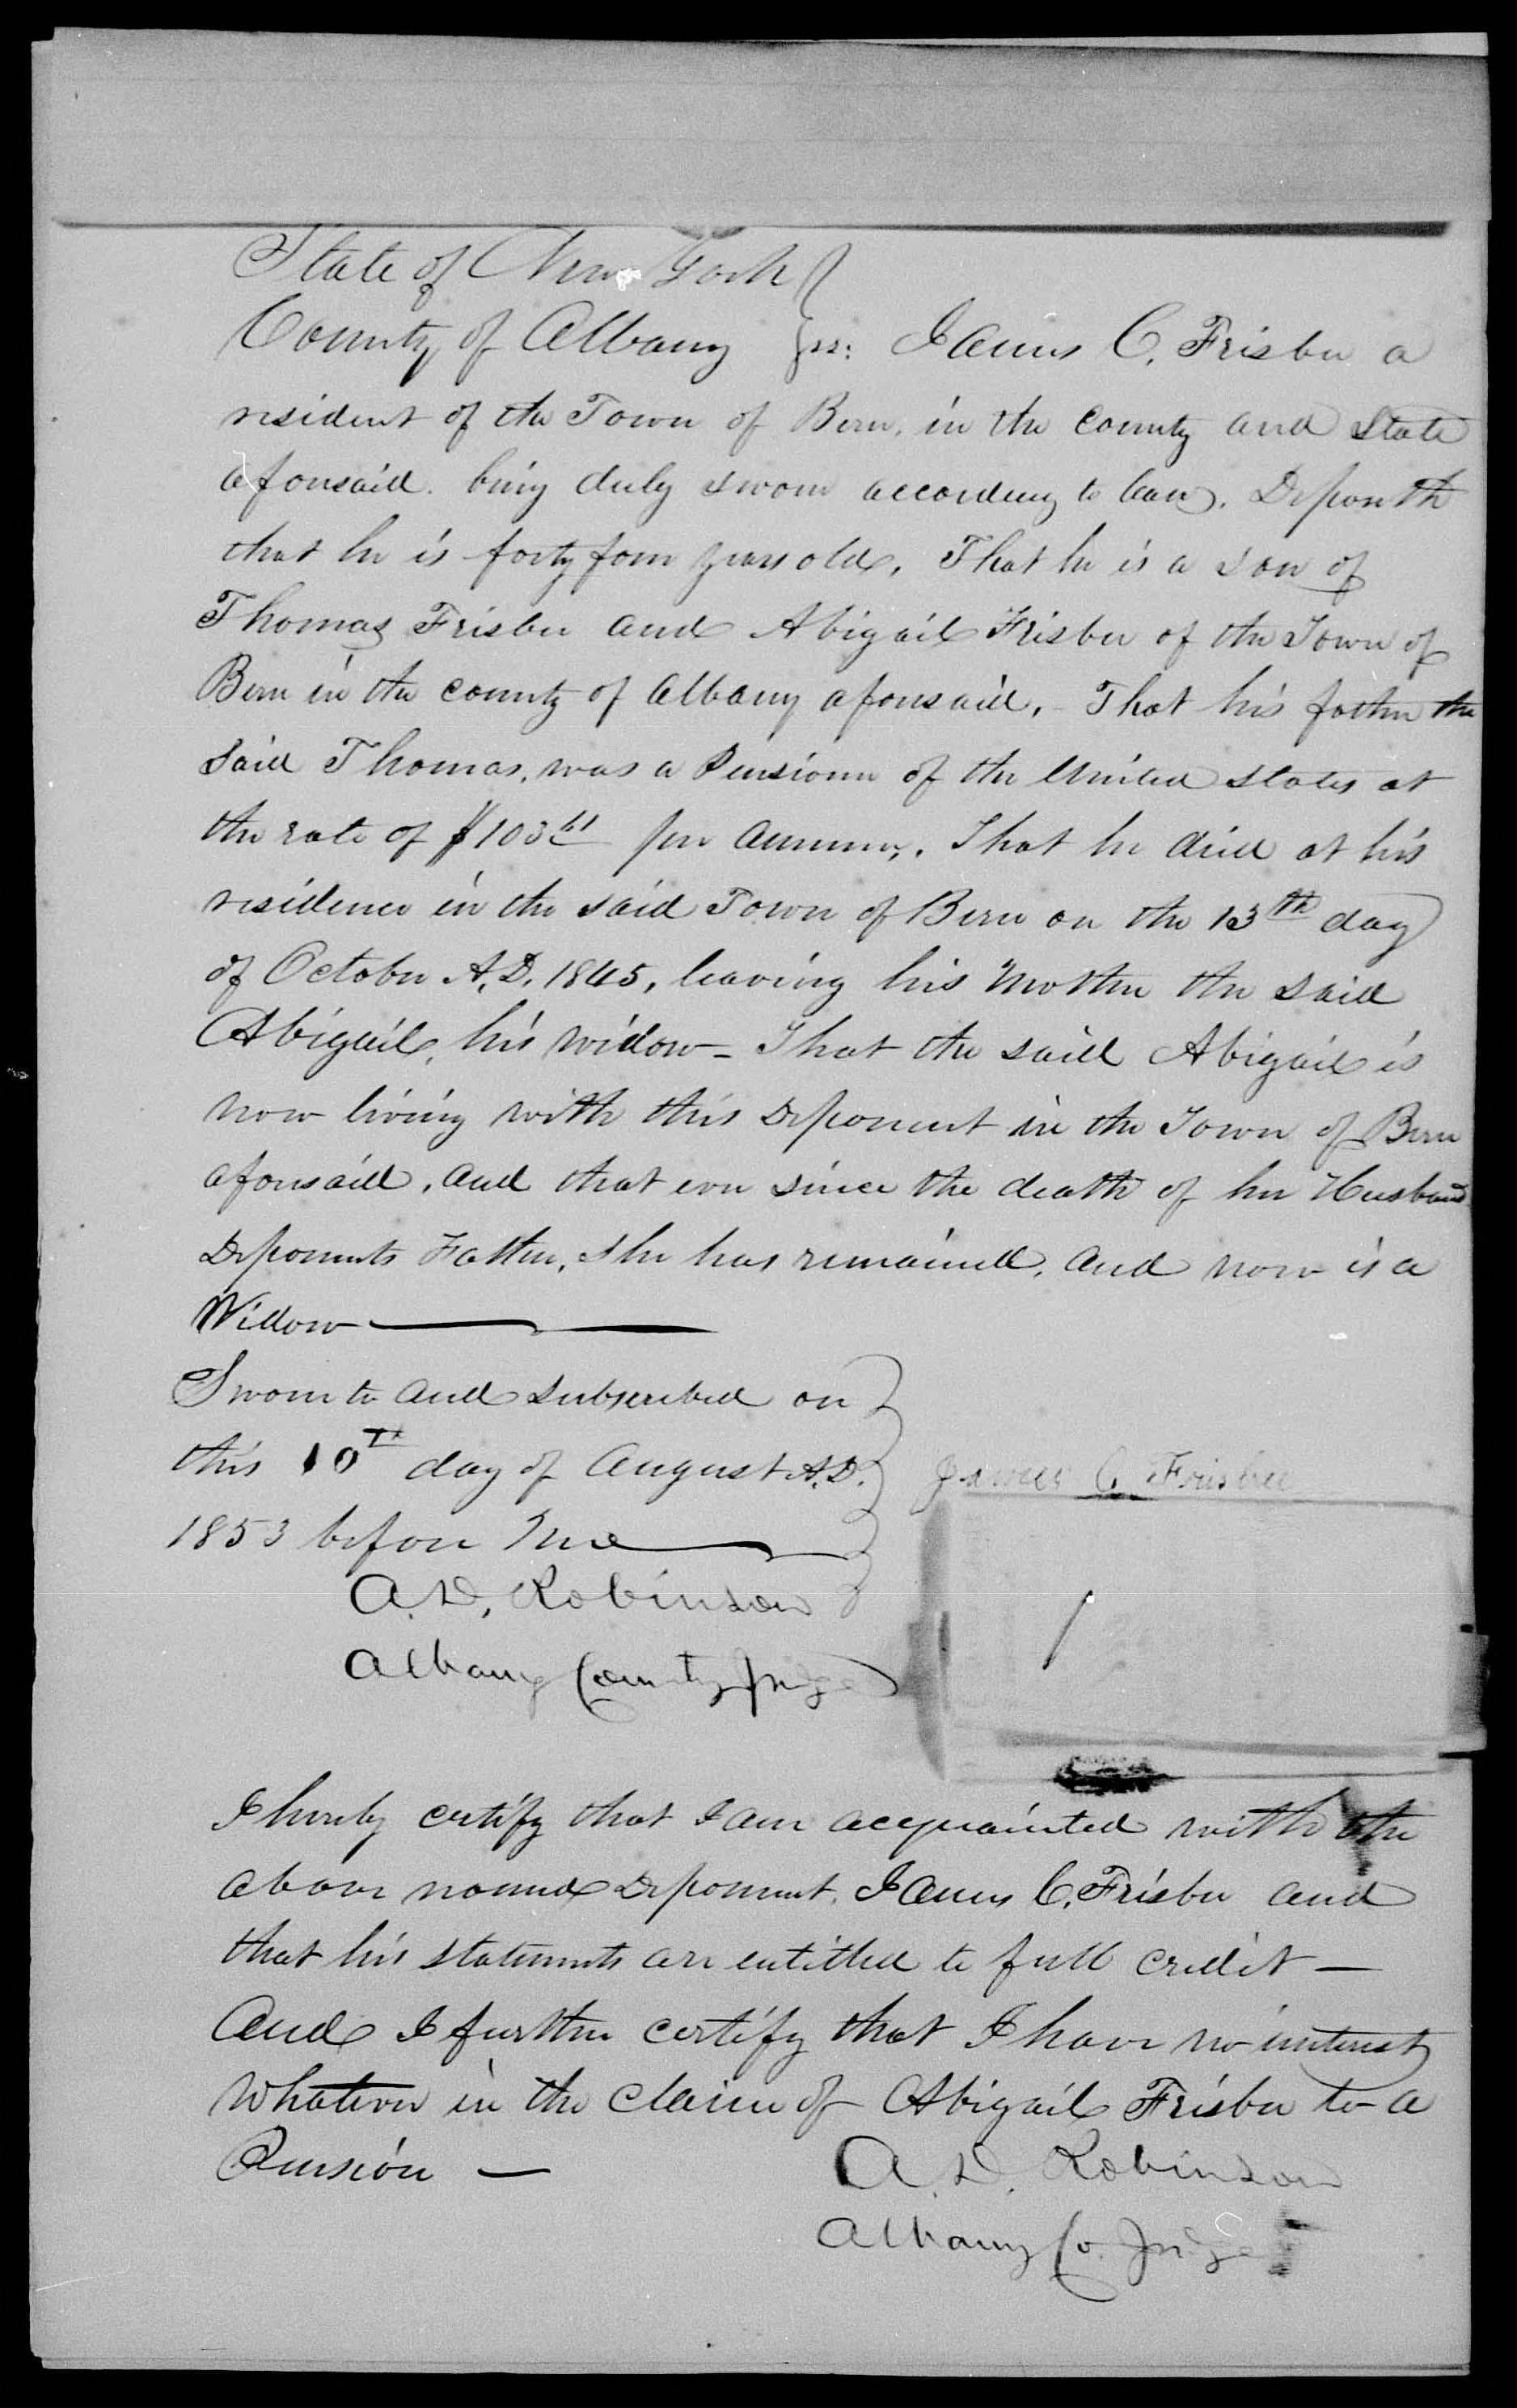 State of New York
County of Albany ss: James C. Frisbee a
resident of the Town of Bern, in the County and State
aforesaid. being duly sworn according to law, Deposeth
that he is forty four years old, That he is a son of
Thomas Frisbee and Abigail Frisbee of the Town of
Bern in the county of Albany aforesaid, - That his father the
said Thomas, was a Pensioner of the United States at
the rate of $103 61 per annum, That he died at his
residence in the said Town of Bern on the 13th day
of October A.D. 1845, leaving his Mother the said
Abigail, his widow - That the said Abigail is
now living with this Deponent in the Town of Bern
aforesaid, and that ever since the death of her Husband
Deponents Father, she has remained, and now is a
Widow
Sworn to and subscribed on
this 10th day of August A.D.
1853 before me
James C. Frisbee
A. D. Robinson
Albany County Judge
I hereby certify that I am acquainted with the
above named Deponent, James C. Frisbee and
that his statements are entitled to full credit —
And I further certify that I have no interest
whatever in the claim of Abigail Frisbee to a
Pension —
A. D. Robinson
Albany Co. Judge